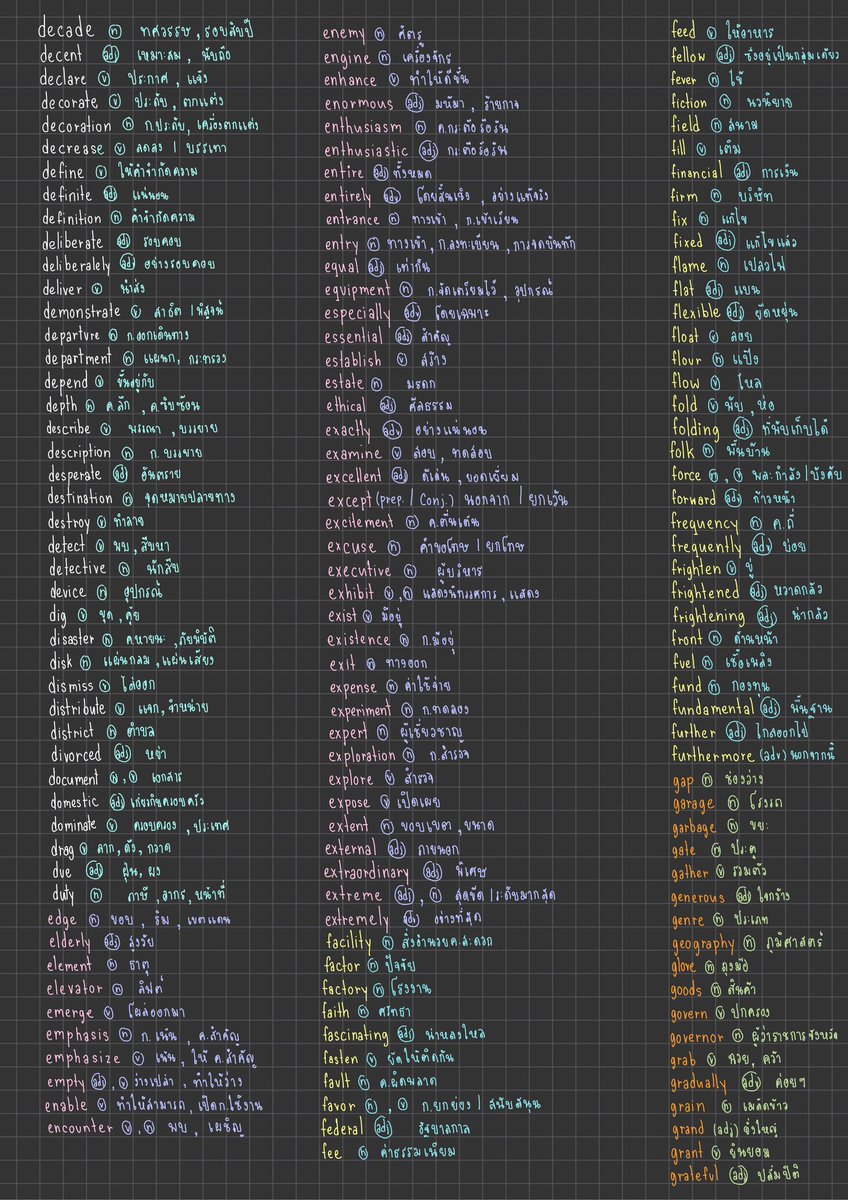 decade n ทศวรรษ, รอบสิบปี
decent adj เหมาะสม, นับถือ
declare v ประกาศ, แจ้ง
decorate v ประดับ, ตกแต่ง
decoration n ก.ประดับ, เครื่องตกแต่ง
decrease v ลดลง / บรรเทา
define v ให้คำจำกัดความ
definite adj แน่นอน
definition n คำจำกัดความ
deliberate adj รอบคอบ
deliberalely adj อย่างรอบคอบ
deliver v นำส่ง
demonstrate v สาธิต / พิสูจน์
departure n ก.ออกเดินทาง
department n แผนก, กระทรวง
depend v ขึ้นอยู่กับ
depth n ค.ลึก, ค.ซับซ้อน
describe v พรรณา, บรรยาย
description n ก.บรรยาย
desperate adj อันตราย
destination n จุดหมายปลายทาง
destroy v ทำลาย
detect v พบ, สืบหา
detective n นักสืบ
device n อุปกรณ์
dig v ขุด, คุ้ย
disaster n ค.หายนะ, ภัยพิบัติ
disk n แผ่นกลม, แผ่นเสียง
dismiss v ไล่ออก
distribute v แจก, จำหน่าย
district n ตำบล
divorced adj หย่า
document n, v เอกสาร
domestic adj เกี่ยวกับครอบครัว
dominate v ครอบครอง, ประเทศ
drag v ลาก, ดึง, กวาด
due adj ฝุ่น, ผง
duty n ภาษี, อากร, หน้าที่
edge n ขอบ, ริม, เขตแดน
elderly adj สูงวัย
element n ธาตุ
elevator n ลิฟต์
emerge v โผล่ออกมา
emphasis n ก.เน้น, ค.สำคัญ
emphasize v เน้น, ให้ ค.สำคัญ
empty adj, v ว่างเปล่า, ทำให้ว่าง
enable v ทำให้สามารถ, เปิดก.ใช้งาน
encounter v, n พบ, เผชิญ
enemy n ศัตรู
engine n เครื่องจักร
enhance v ทำให้ดีขึ้น
enormous adj มหึมา, ร้ายกาจ
enthusiasm n ค.กระตือรือร้น
enthusiastic adj กระตือรือร้น
entire adj ทั้งหมด
entirely adv โดยสิ้นเชิง, อย่างแท้จริง
entrance n ทางเข้า, ก.เข้าเรียน
entry n ทางเข้า, ก.ลงทะเบียน, การจดบันทึก
equal adj เท่ากัน
equipment n ก.จัดเตรียมไว้, อุปกรณ์
especially adv โดยเฉพาะ
essential adj สำคัญ
establish v สร้าง
estate n มรดก
ethical adj ศีลธรรม
exactly adv อย่างแน่นอน
examine v สอบ, ทดสอบ
excellent adj ดีเด่น, ยอดเยี่ยม
except (prep. / Conj.) นอกจาก / ยกเว้น
excitement n ค.ตื่นเต้น
excuse n คำขอโทษ / ยกโทษ
executive n ผู้บริหาร
exhibit v, n แสดงนิทรรศการ, แสดง
exist v มีอยู่
existence n ก.มีอยู่
exit n ทางออก
expense n ค่าใช้จ่าย
experiment n ก.ทดลอง
expert n ผู้เชี่ยวชาญ
exploration n ก.สำรวจ
explore v สำรวจ
expose v เปิดเผย
extent n ขอบเขต, ขนาด
external adj ภายนอก
extraordinary adj พิเศษ
extreme adj, n สุดขีด / ระดับมากสุด
extremely adv อย่างที่สุด
facility n สิ่งอำนวยค.สะดวก
factor n ปัจจัย
factory n โรงงาน
faith n ศรัทธา
fascinating adj น่าหลงใหล
fasten v ยึดให้ติดกัน
fault n ค.ผิดพลาด
favor n, v ก.ยกย่อง / สนับสนุน
federal adj รัฐบาลกาล
fee n ค่าธรรมเนียม
feed v ให้อาหาร
fellow adj ซึ่งอยู่เป็นกลุ่มเดียว
fever n ไข้
fiction n นวนิยาย
field n สนาม
fill v เติม
financial adj การเงิน
firm n บริษัท
fix n แก้ไข
fixed adj แก้ไขแล้ว
flame n เปลวไฟ
flat adj แบน
flexible adj ยืดหยุ่น
float v ลอย
flour n แป้ง
flow v ไหล
fold v พับ, ห่อ
folding adj ที่พับเก็บได้
folk n พื้นบ้าน
force n, v พละกำลัง / บังคับ
forward adv ก้าวหน้า
frequency n ค.ถี่
frequently adv บ่อย
frighten v ขู่
frightened adj หวาดกลัว
frightening adj น่ากลัว
front n ด้านหน้า
fuel n เชื้อเพลิง
fund n กองทุน
fundamental adj พื้นฐาน
further adj ไกลออกไป
furthermore (adv) นอกจากนี้
gap n ช่องว่าง
garage n โรงรถ
garbage n ขยะ
gate n ประตู
gather v รวมตัว
generous adj ใจกว้าง
genre n ประเภท
geography n ภูมิศาสตร์
glove n ถุงมือ
goods n สินค้า
govern v ปกครอง
governor n ผู้ว่าราชการจังหวัด
grab v ฉวย, คว้า
gradually adv ค่อยๆ
grain n เมล็ดข้าว
grand (adj) ยิ่งใหญ่
grant v ยินยอม
grateful (adj) ปลื้มปิติ